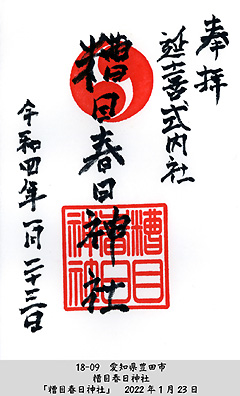 奉拝
延喜式内社
糟目春日神社
令和四年一月二十三日
糟目
春日
神社
18-09　愛知県豊田市
糟目春日神社
「糟目春日神社」　2022年1月23日